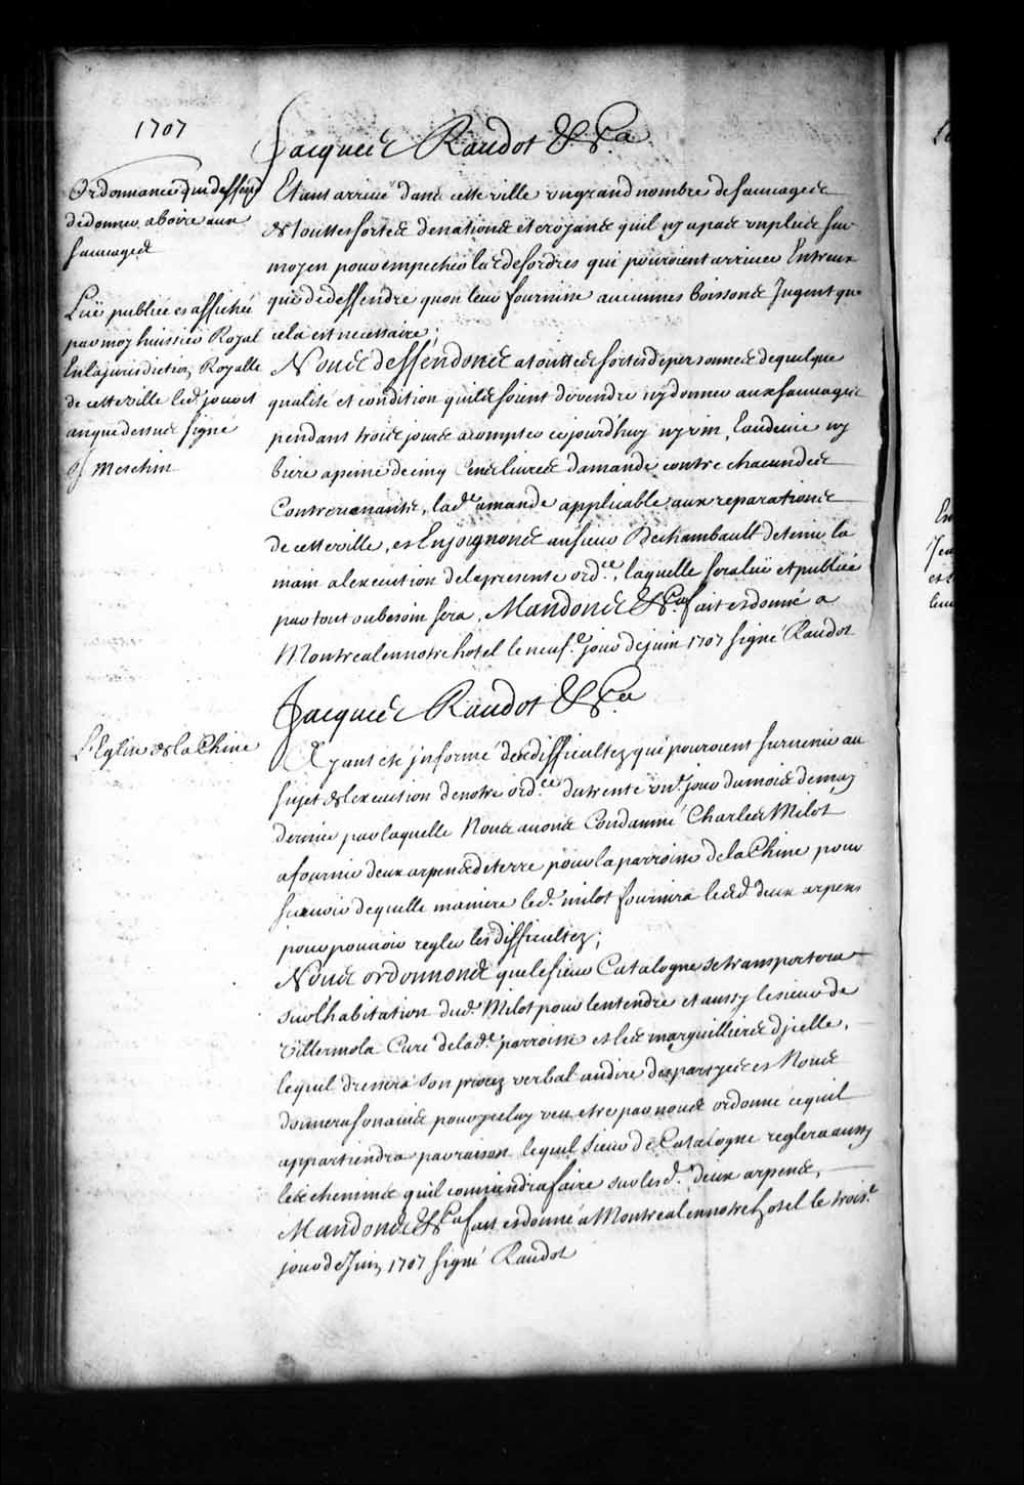 1707
Ordonnance qui deffend
de donner a boire aux
sauvages
Lüe publiée et affichée
par moy huissier Royal
En la jurisdiction Royalle
de cette ville led. jour et
an que dessus signé
Meschin
Jacques Raudot &ca
Etant arrivé dans cette ville un grand nombre de sauvages
de touttes sortes de nations et croyans quil ny a pas un plus sur
moyen pour empecher les desordres qui pouroient arriver Entreux
que de deffendre quon leur fournisse aucunes boissons Jugent que
cela est necessaire;
Nous deffendons a touttes sortes de personnes de quelque
qualité et condition quils soient de vendre ny donner aux sauvages
pendant trois jours a compter cejourd'huy ny vin, Eaudevie ny
biere a peine de cinq Cens livres damande contre chacun des
Contrevenants, lade amande applicable aux reparations
de cette ville, et Enjoignons au sieur Deschambault de tenir la
main a lexecution de la presente ord.ce, laquelle sera lüe et publiée
par tout ou besoin sera, Mandons &ca fait et donné a
Montreal en notre hotel le neuf.e jour de juin 1707 signé Raudot
L'Eglise de la Chine
Jacques Raudot &ca
Ayant eté jnformé des difficultez qui pouroient survenir au
sujet de lexecution de notre ord.ce du trente un.e jour du mois de may
dernier par laquelle Nous avons Condamné Charles Milot
a fournir deux arpens de terre pour la parroisse de la Chine pour
scavoir de quelle maniere led. milot fournira lesd. deux arpens
pour pouvoir regler les difficultez;
Nous ordonnons que le sieur Catalogne se transportera
sur l'habitation dud. Milot pour lentendre et aussy le sieur de
Villermola Curé de lad.e parroisse et les marguilliers d'jcelle,
lequel dressera son procez verbal au dire des partyes et Nous
donnera son avis pour jceluy veu etre par nous ordonné ce quil
appartiendra par raison lequel sieur de Catalogne reglera aussy
les chemins quil conviendra faire sur lesd. deux arpens,
Mandons &ca fait et donné a Montreal en notre hotel le trois.e
jour de Juin 1707 signé Raudot